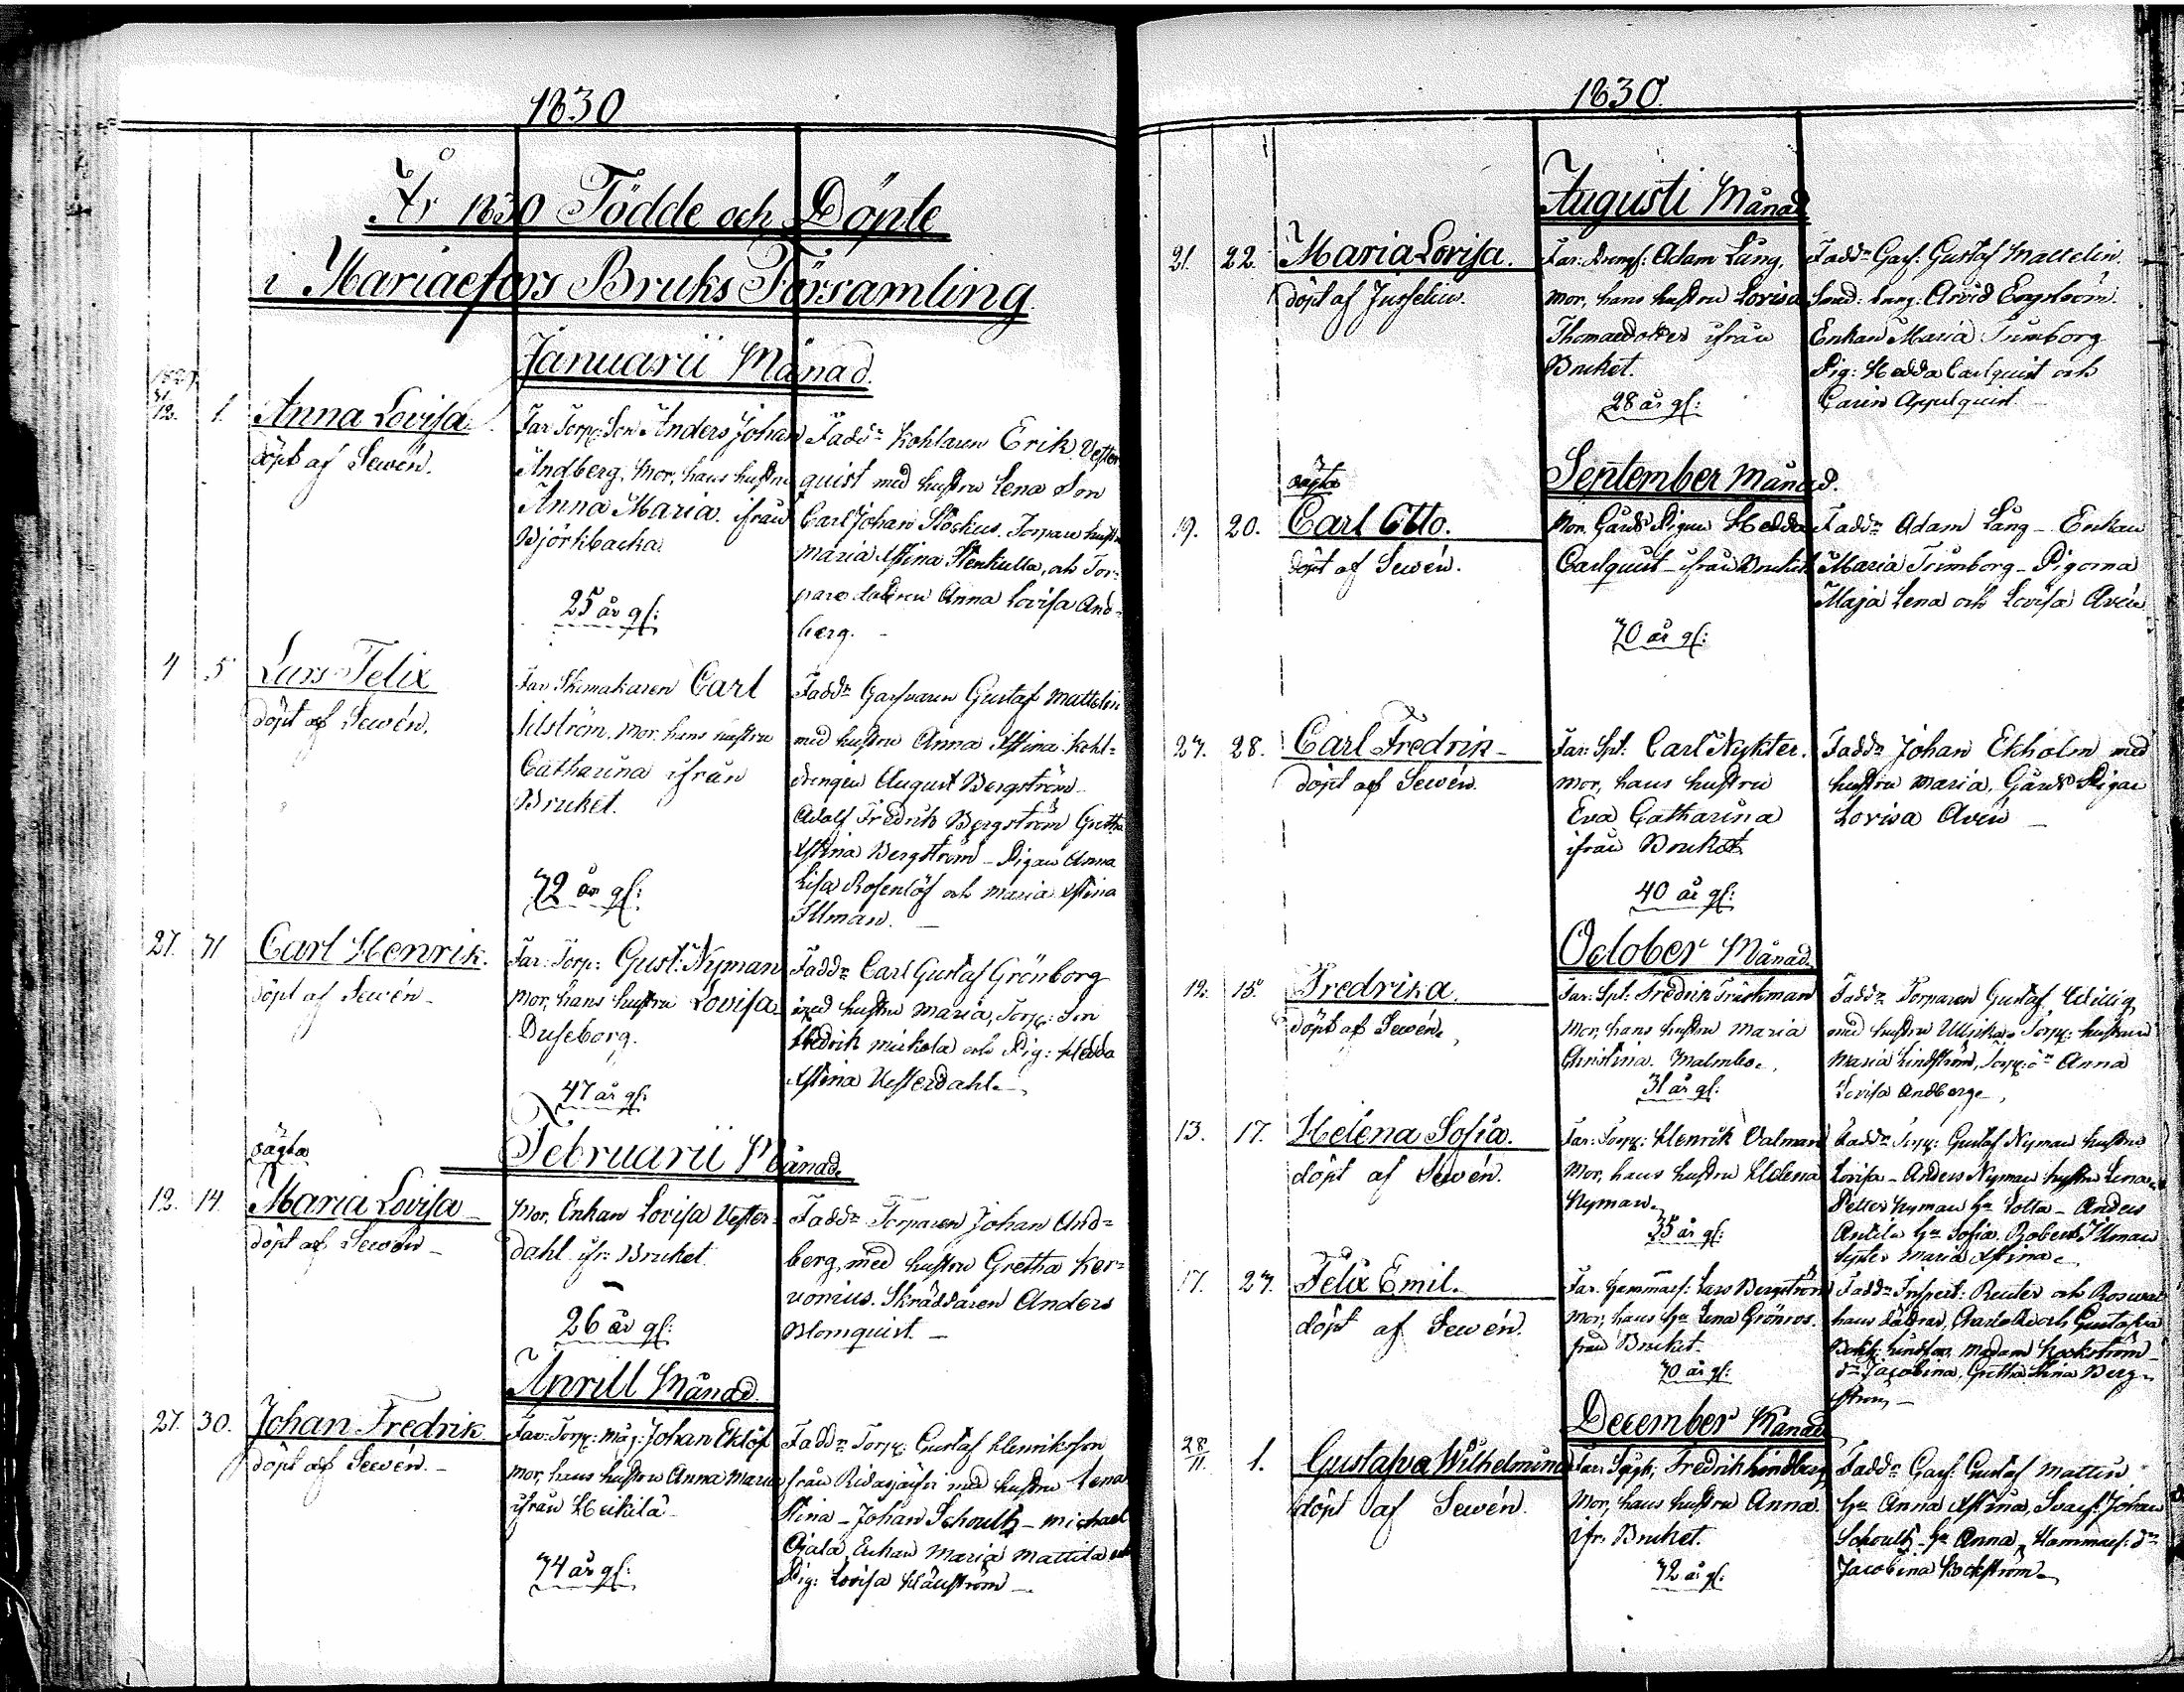 1830
År 1830 Födde och Döpte
i Mariaefors Bruks Församling
Januarii Månad.
12. 1. Anna Lovisa.
döpt af Sewén.
Far Torp: Son Anders Johan
Andberg, Mor, hans hustru
Anna Maria. ifrån
Björkbacka.
25 år gl:
Fadd:r Kohlaren Erik Vester
quist med hustru Lena Son
Carl Johan Stockus. Torpare hustr
Maria Stina Stenkulla, och Tor=
pare dottren Anna Lovisa And=
berg.
4 5 Lars Felix
döpt af Sewén.
Far Skomakaren Carl
mor, hans hustru
Catharina ifrån
Bruket.
32 år gl:
Fadd:r Garfvaren Gustaf Mattelin
med hustru Anna Stina Kohl=
drengen August Bergström
Adolf Fredrik Bergström Gretha
Stina Bergström - Pigan Anna
Lisa Rosenlöf och Maria Stina
Illman.
27. 31 Carl Henrik.
döpt af Sewén
Far: Torp: Gust. Nyman
Mor, hans hustru Lovisa
Duseborg.
47 år gl:
Fadd:r Carl Gustaf Grönborg
med hustru Maria, Torp: Son
Hedrik Miskola och Pig: Hedda
Stina Vesterdahl
Februarii Månad.
oägta
12. 14. Maria Lovisa
döpt af Sewén
Mor, Enkan Lovisa Vester=
dahl ifr: Bruket.
26 år gl:
Fadd:r Torparen Johan And=
berg, med hustru Gretha Ker=
vonius. Skräddaren Anders
Blomquist.
Aprill Månad.
27. 30. Johan Fredrik
döpt af Sewén.
Far: Torp: Måg: Johan Eklöf
mor, hans hustru Anna Maria
ifrån Heikilä
34 år gl:
Fadd:r Torp: Gustaf Henriksson
från Ridasjärfvi med hustru Lena
Stina - Johan Schoultz - Michael
Ojala, Enkan Maria Mattila och
Pig: Lovisa
1830.
Augusti Månad
21. 22. Maria Lovisa.
döpt af Juselius.
Far: Adam Lång,
mor, hans hustru Lovisa
Thomasdotter ifrån
Bruket.
28 år gl:
Fadd:r Garf: Gustaf Mattelin.
Arvid Engström.
Enkan Maria Trimborg
Pig: Hedda Carlquist och
Carin Appelquist
September Månad.
oägta
19. 20. Carl Otto.
döpt af Sewén.
Mor, Gårds Pigan Hedda
Carlquist ifrån Bruket
30 år gl:
Fadd:r Adam Lång - Enkan
Maria Trimborg - Pigorna
Maja Lena och Lovisa Avén
27. 28. Carl Fredrik
döpt af Sewén.
Far: Spt: Carl Nykter.
mor, hans hustru
Eva Catharina
ifrån Bruket
40 år gl:
Fadd:r Johan Ekholm med
hustru Maria, Gårds Pigan
Lovisa Avén
October Månad.
12. 15. Fredrika
döpt af Sewén.
Far: Spt: Fredrik Triskman
Mor, hans hustru Maria
Christina. Malmbo.
31 år gl:
Fadd:r Torparen Gustaf Willig
med hustru Ulrika. Torp: hustrun
Maria Lindström, Torp: d:r Anna
Lovisa Andberg
13. 17. Helena Sofia.
döpt af Sewén.
Far: Torp: Henrik Valman
Mor, hans hustru Helena
Nyman
35 år gl:
Fadd:r Torp: Gustaf Nyman hustru
Lovisa - Anders Nyman hustru Lena
Petter Nyman h:u Lotta - Anders
Antila h:u Sofia. Robert Illman
Syster Maria Stina
17. 27. Felix Emil.
döpt af Sewén.
Far: Hammars: Lars Bergström
Mor, hans h:u Lena Grönros.
från Bruket.
30 år gl:
Fadd:r Inspect: Reuter och
hans döttrar, Charlotte och Gustafva
Madam Kockström
d:r Jacobina, Gretha Stina Berg=
ström
December Månad
28/11. 1. Gustafva Wilhelmina
döpt af Sewén.
Far: Fredrik Lindberg
Mor, hans hustru Anna.
ifr: Bruket.
32 år gl:
Fadd:r Garf: Gustaf Mattlin
h:u Anna Stina, Svarf: Johan
Schoultz h:u Anna, Hammars: d:r
Jacobina Kockström